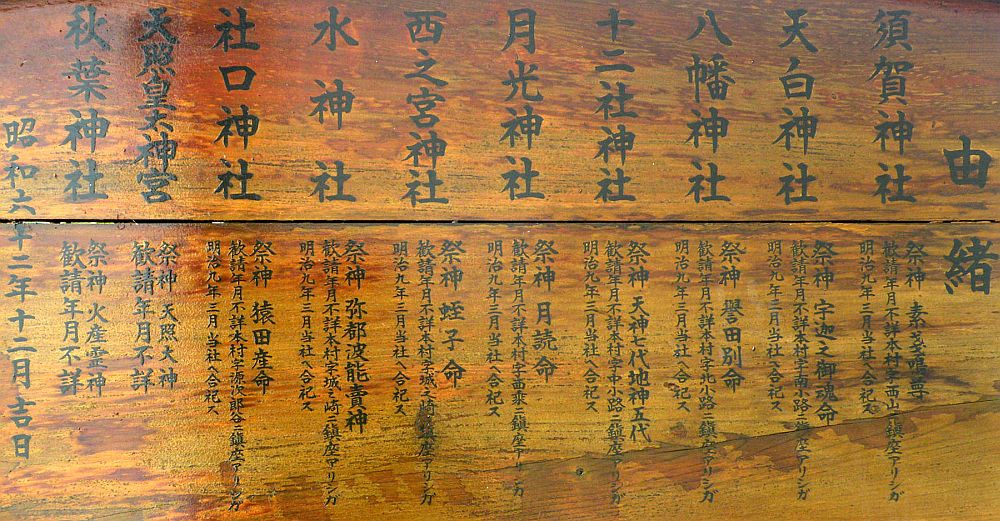 由緒
須賀神社
祭神 素戔嗚尊
歓請年月不詳本村字西山ニ鎮座アリシガ
明治九年三月当社ヘ合祀ス
天白神社
祭神 宇迦之御魂命
歓請年月不詳本村字南小路ニ鎮座アリシガ
明治九年三月当社ヘ合祀ス
八幡神社
祭神 譽田別命
歓請年月不詳本村字北小路ニ鎮座アリシガ
明治九年三月当社ヘ合祀ス
十二社神社
祭神 天神七代地神五代
歓請年月不詳本村字中小路ニ鎮座アリシガ
明治九年三月当社ヘ合祀ス
月光神社
祭神 月読命
歓請年月不詳本村字西乗ニ鎮座アリシガ
明治九年三月当社ヘ合祀ス
西之宮神社
祭神 蛭子命
歓請年月不詳本村字城之崎ニ鎮座アリシガ
明治九年三月当社ヘ合祀ス
水神社
祭神 弥都波能賣神
歓請年月不詳本村字城之崎ニ鎮座アリシガ
明治九年三月当社ヘ合祀ス
社口神社
祭神 猿田産命
歓請年月不詳本村字源次郎谷ニ鎮座アリシガ
明治九年三月当社ヘ合祀ス
天照皇大神宮
祭神 天照大神
歓請年月不詳
秋葉神社
祭神 火産霊神
歓請年月不詳
昭和六十二年十二月吉日